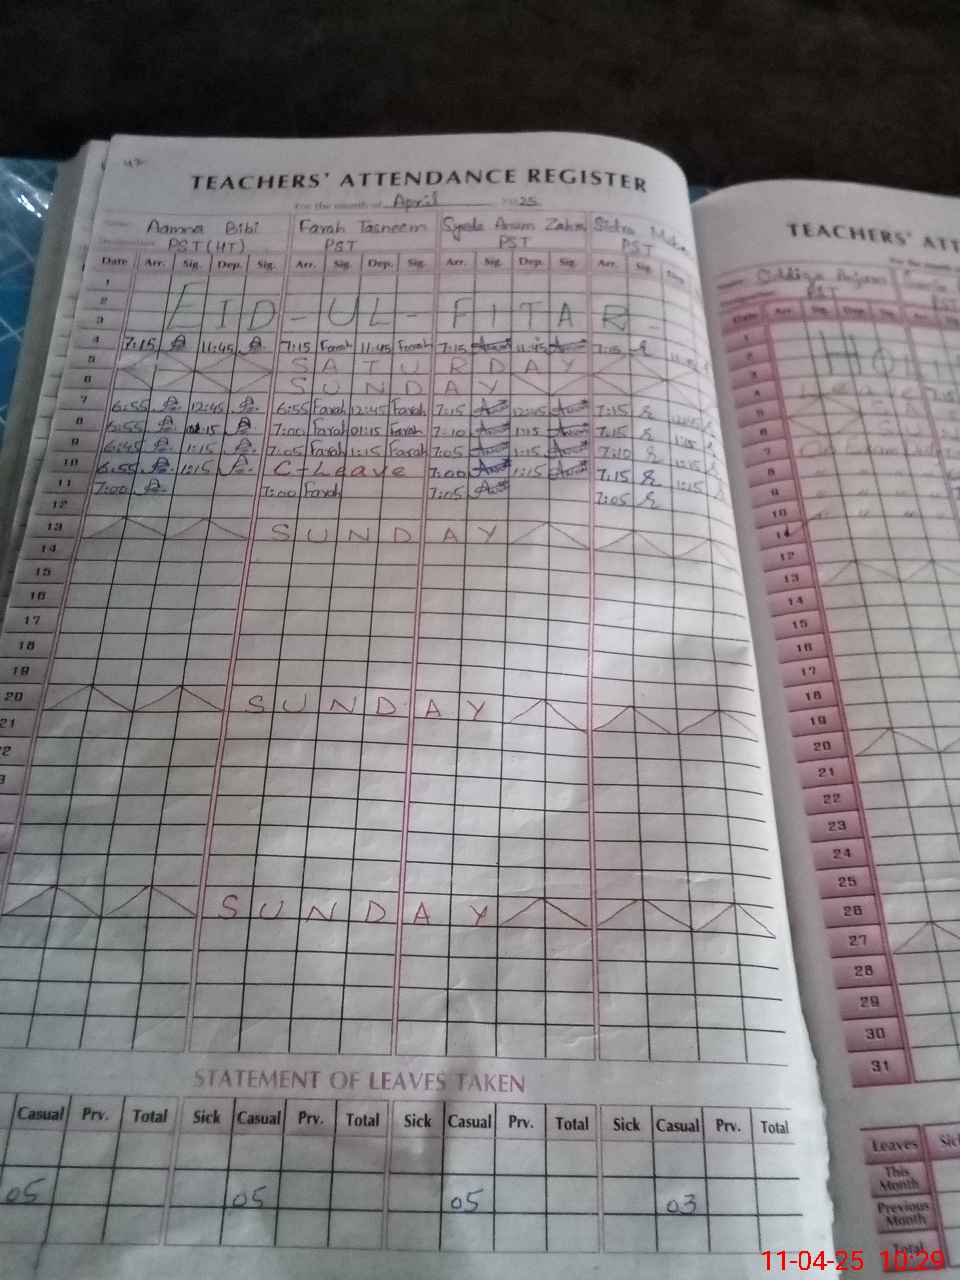 47
TEACHERS' ATTENDANCE REGISTER
For the month of April 2025
Aamna Bibi Farah Tasneem Syeda Anum Zahra Sidra
PST(HT) PST PST PST
Date Arr. Sig. Dep. Sig. Arr. Sig. Dep. Sig. Arr. Sig. Dep. Sig. Arr. Sig. Dep.
1
2 EID-UL-FITAR
3
4 7:15 11:45 7:15 Farah 11:45 Farah 7:15 11:45 7:15
5 SATURDAY
6 SUNDAY
7 6:55 12:45 6:55 Farah 12:45 Farah 7:15 12:45 7:15
8 6:55 7:00 Farah 01:15 Farah 7:10 1:15 7:15 1:15
9 6:45 1:15 7:05 Farah 1:15 Farah 7:05 1:15 7:10
10 6:55 1:15 C-Leave 7:00 1:15 7:15 1:15
11 7:00 7:00 Farah 7:05 7:05
12
13 SUNDAY
14
15
16
17
18
19
20 SUNDAY
21
SUNDAY
STATEMENT OF LEAVES TAKEN
Casual Prv. Total Sick Casual Prv. Total Sick Casual Prv. Total Sick Casual Prv. Total
05 05 05 03
TEACHERS' ATT
PST
Date Arr. Sig. Dep. Sig. Arr.
1
2 HO
3
4
5
6
7
8
9
10
11
12
13
14
15
16
17
18
19
20
21
22
23
24
25
26
27
28
29
30
31
Leaves
This Month
Previous Month
Total
11-04-25 10:29